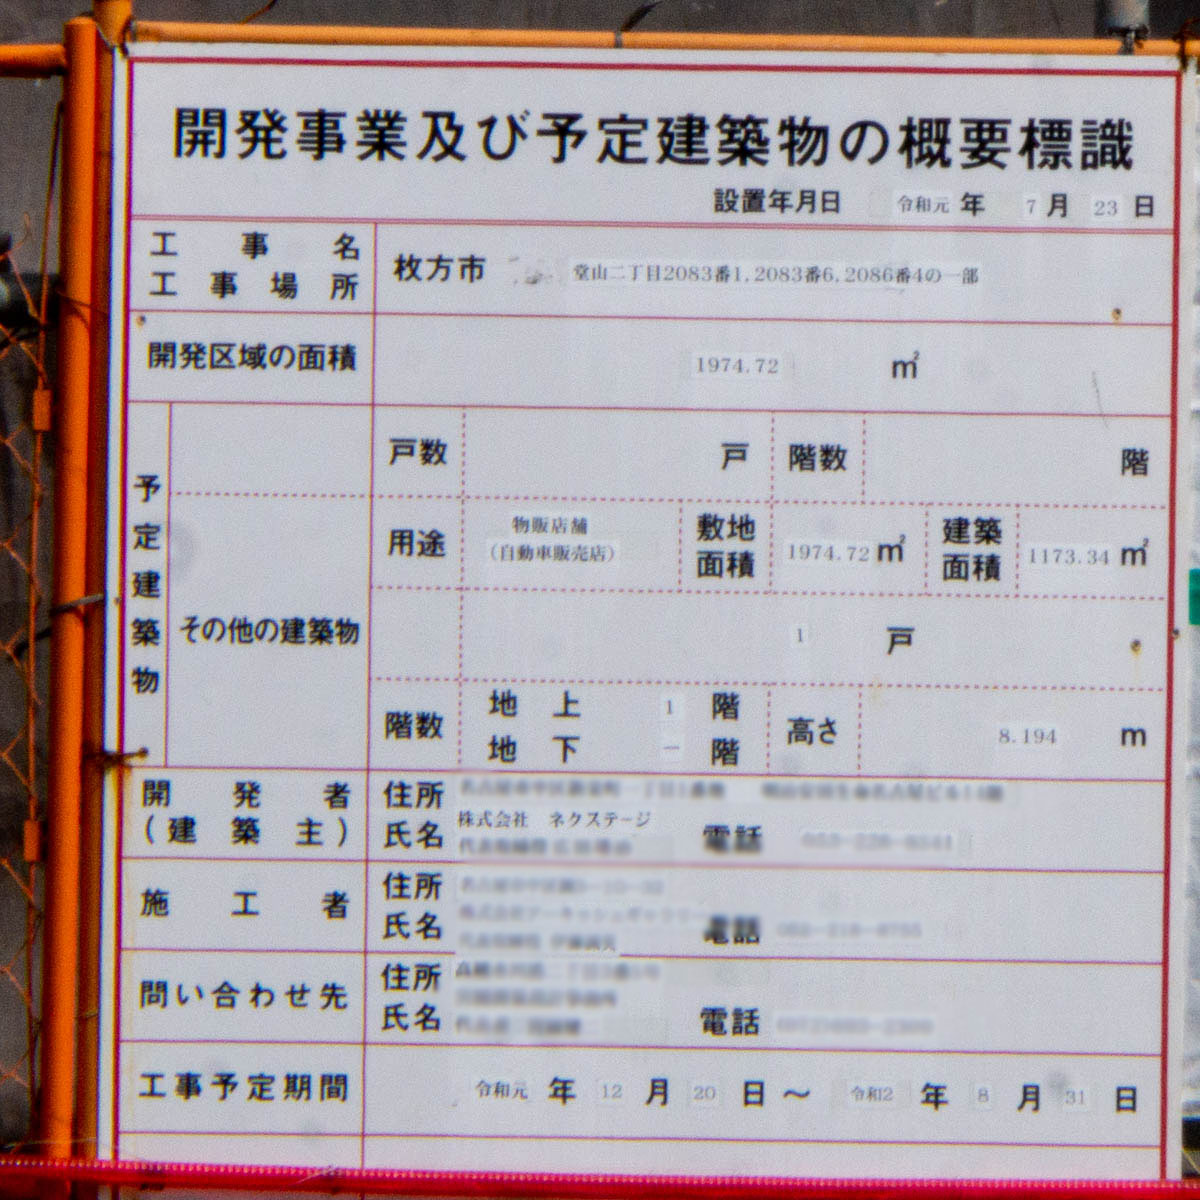 開発事業及び予定建築物の概要標識
設置年月日 令和元 年 7 月 23 日
工事名
工事場所
枚方市 堂山二丁目2083番1,2083番6,2086番4の一部
開発区域の面積 1974.72 ㎡
予定建築物
戸数 戸 階数 階
その他の建築物
用途 物販店舗
(自動車販売店)
敷地面積 1974.72 ㎡
建築面積 1173.34 ㎡
1 戸
階数 地上 1 階
地下 ー 階
高さ 8.194 m
開発者
(建築主)
住所
氏名 株式会社 ネクステージ
電話
施工者
住所
氏名
電話
問い合わせ先
住所
氏名
電話
工事予定期間 令和元 年 12 月 20 日 ～ 令和2 年 8 月 31 日